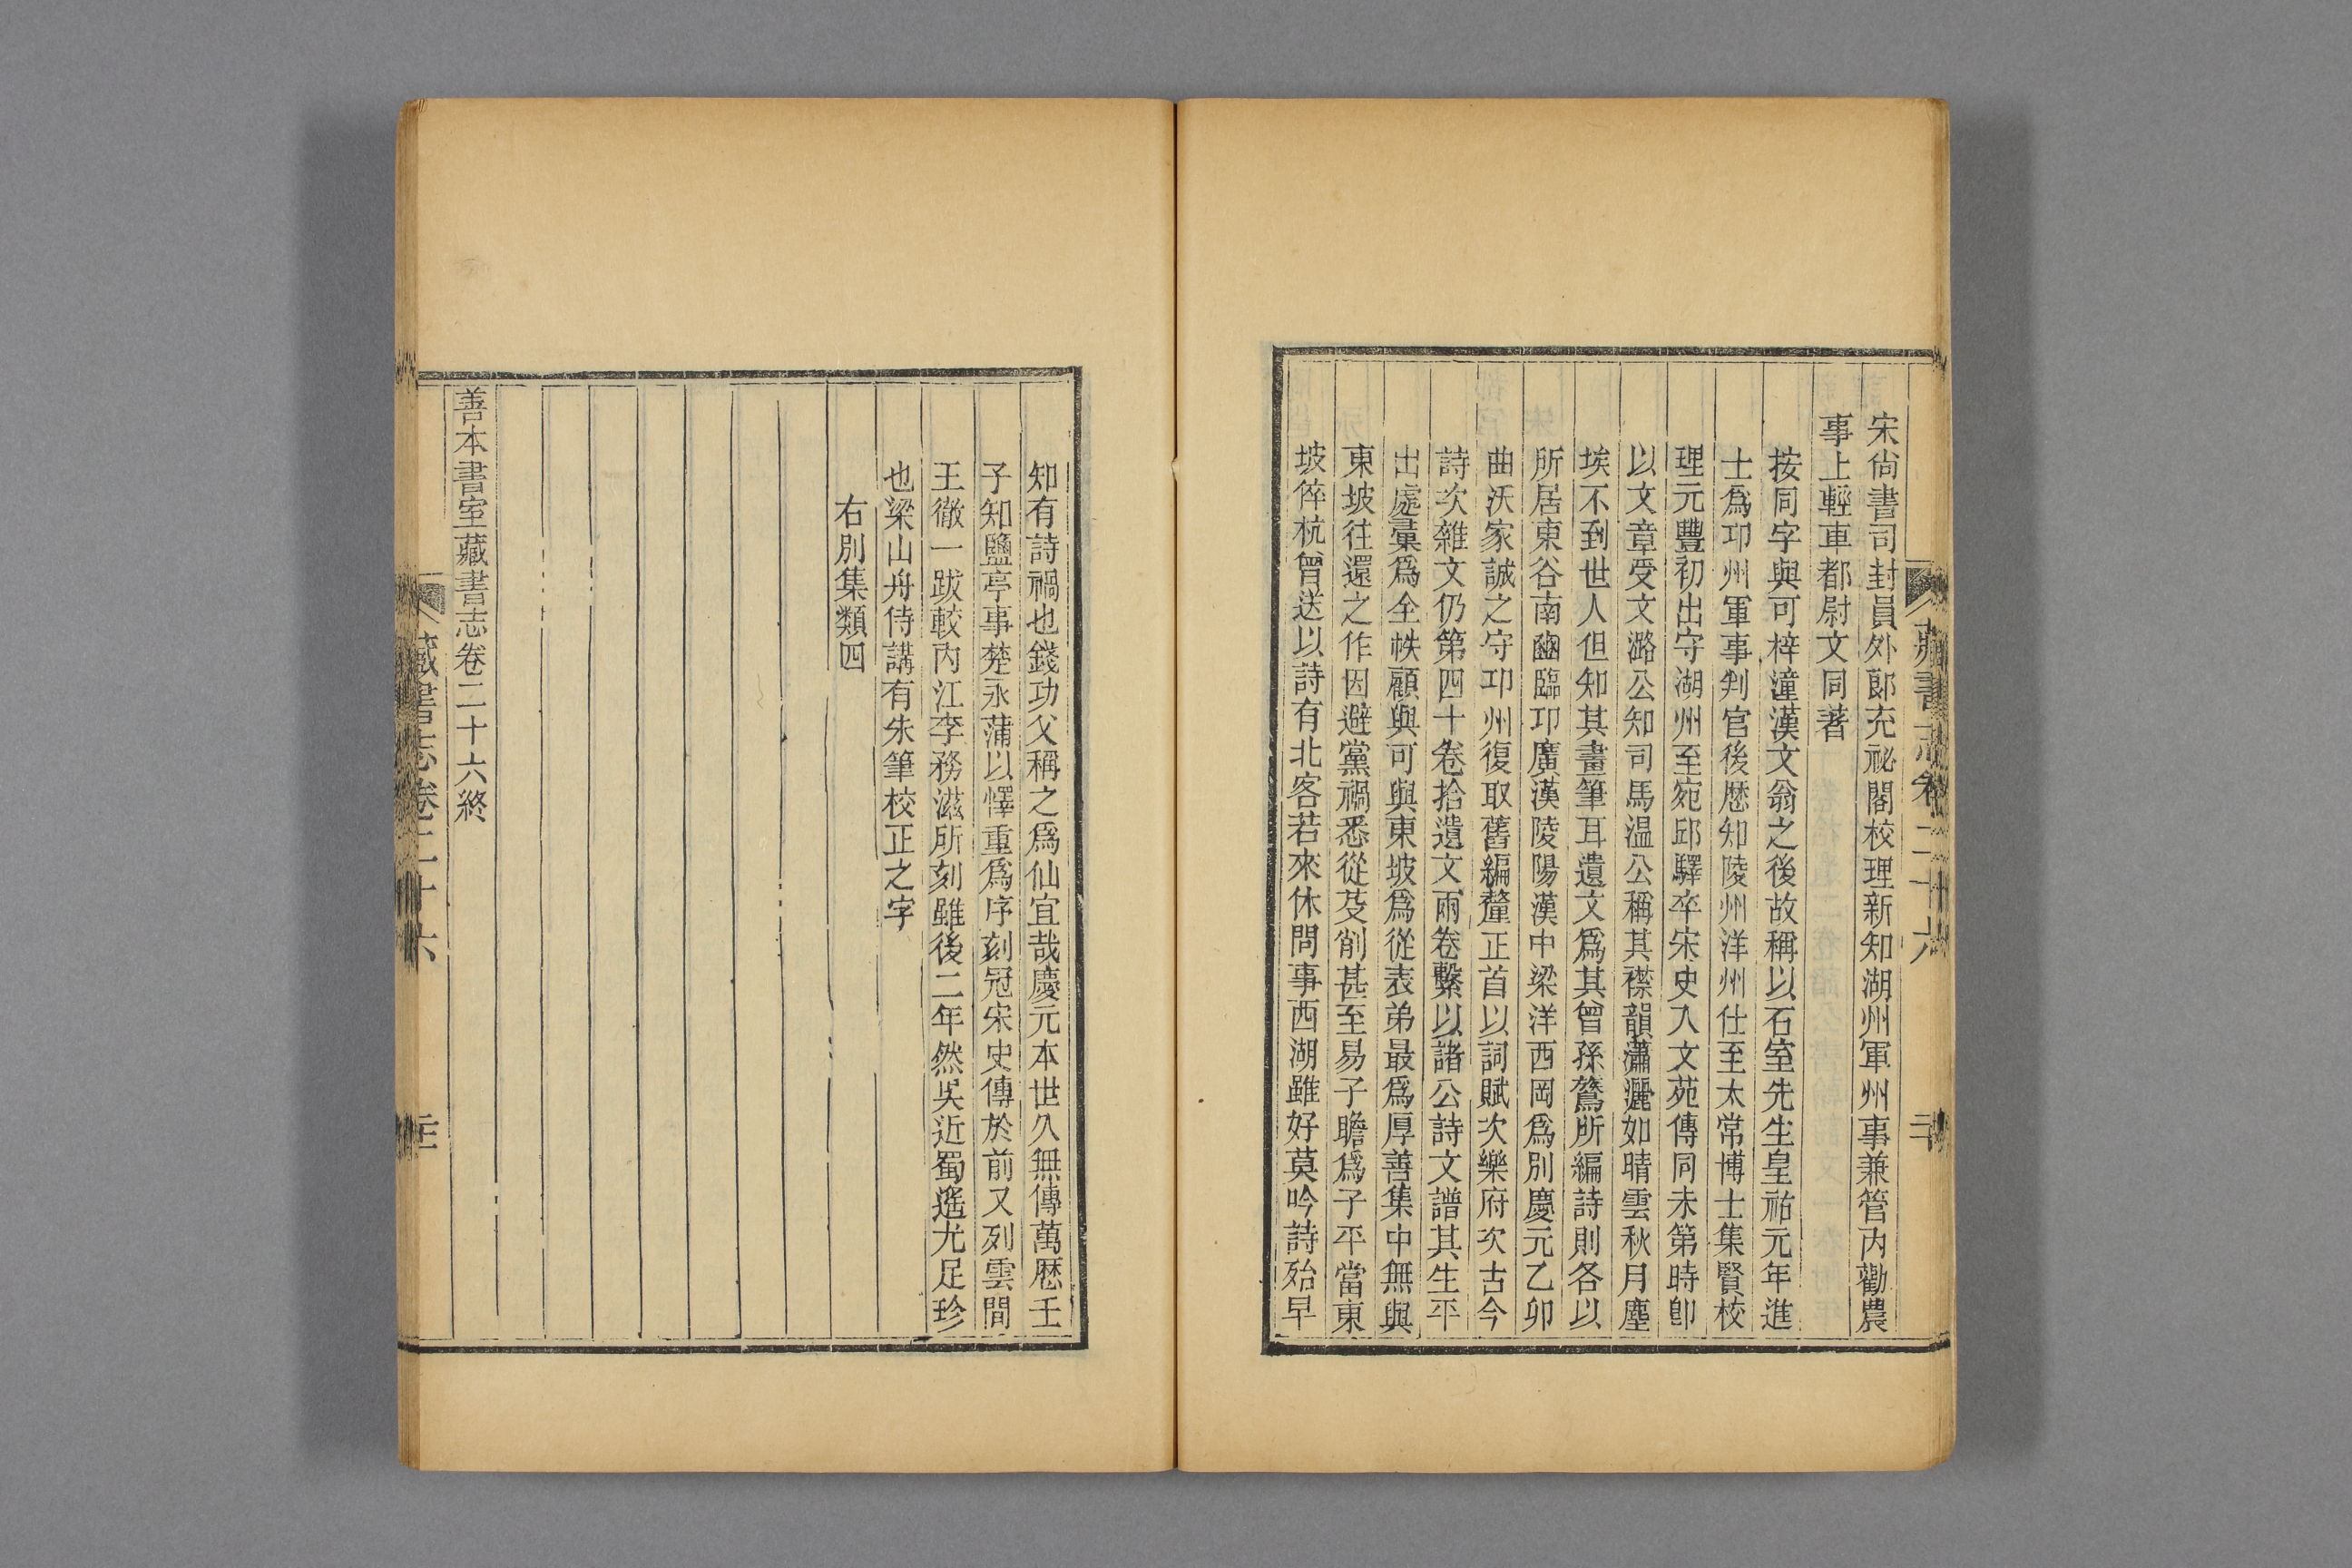 藏書志卷二十六
宋尙書司封員外郞充祕閣校理新知湖州軍州事兼管內勸農
事上輕車都尉文同著
按同字與可梓潼漢文翁之後故稱以石室先生皇祐元年進
士爲邛州軍事判官後歴知陵州洋州仕至太常博士集賢校
理元豐初出守湖州至宛邱驛卒宋史入文苑傳同未第時卽
以文章受文潞公知司馬温公稱其襟韻瀟灑如晴雲秋月塵
埃不到世人但知其畫筆耳遺文爲其曾孫鷟所編詩則各以
所居東谷南𨞬臨邛廣漢陵陽漢中梁洋西岡爲別慶元乙卯
曲沃家誠之守邛州復取舊編釐正首以詞賦次樂府次古今
詩次雜文仍第四十卷拾遺文兩卷繫以諸公詩文譜其生平
出處彙爲全帙顧與可與東坡爲從表弟最爲厚善集中無與
東坡往還之作因避黨禍悉從芟削甚至易子瞻爲子平當東
坡倅杭曾送以詩有北客若來休問事西湖雖好莫吟詩殆早
知有詩禍也錢功父稱之爲仙宜哉慶元本世久無傳萬歴壬
子知鹽亭事楚永蒲以懌重爲序刻冠宋史傳於前又列雲間
王徵一跋較內江李務滋所刻雖後二年然吳近蜀遙尤足珍
也梁山舟侍講有朱筆校正之字
右別集類四
善本書室藏書志卷二十六終
藏書志卷二十六